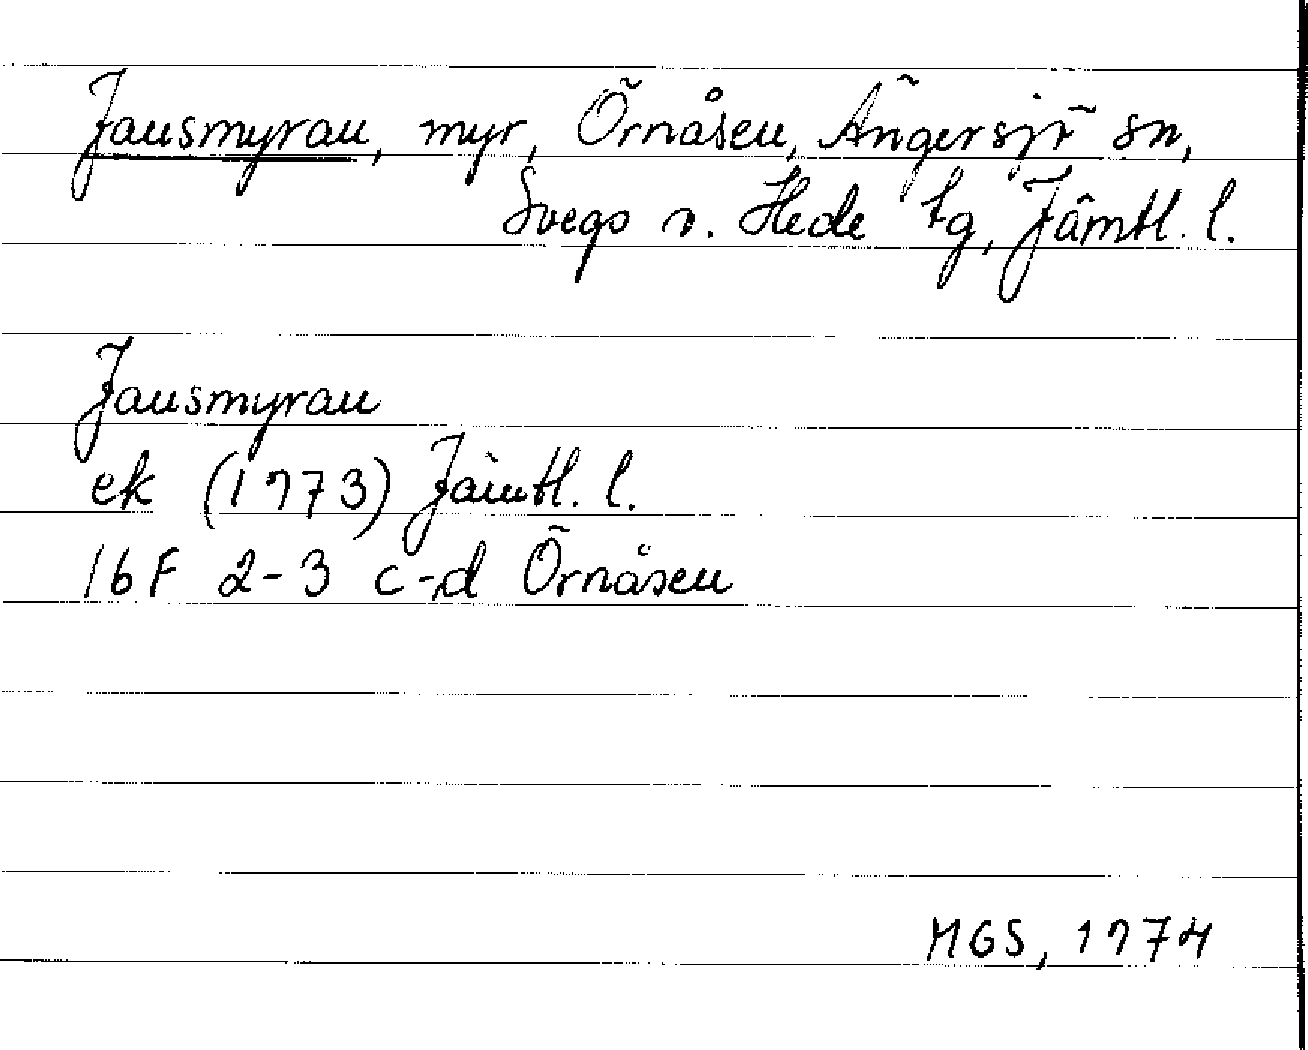 Jansmyran, myr, Örnåsen, Ängersjö sn,
Svegs o. Hede tg, Jämtl. l.
Jansmyran
ek (1973) Jämtl. l.
16F 2-3 c-d Örnåsen
MGS, 1974